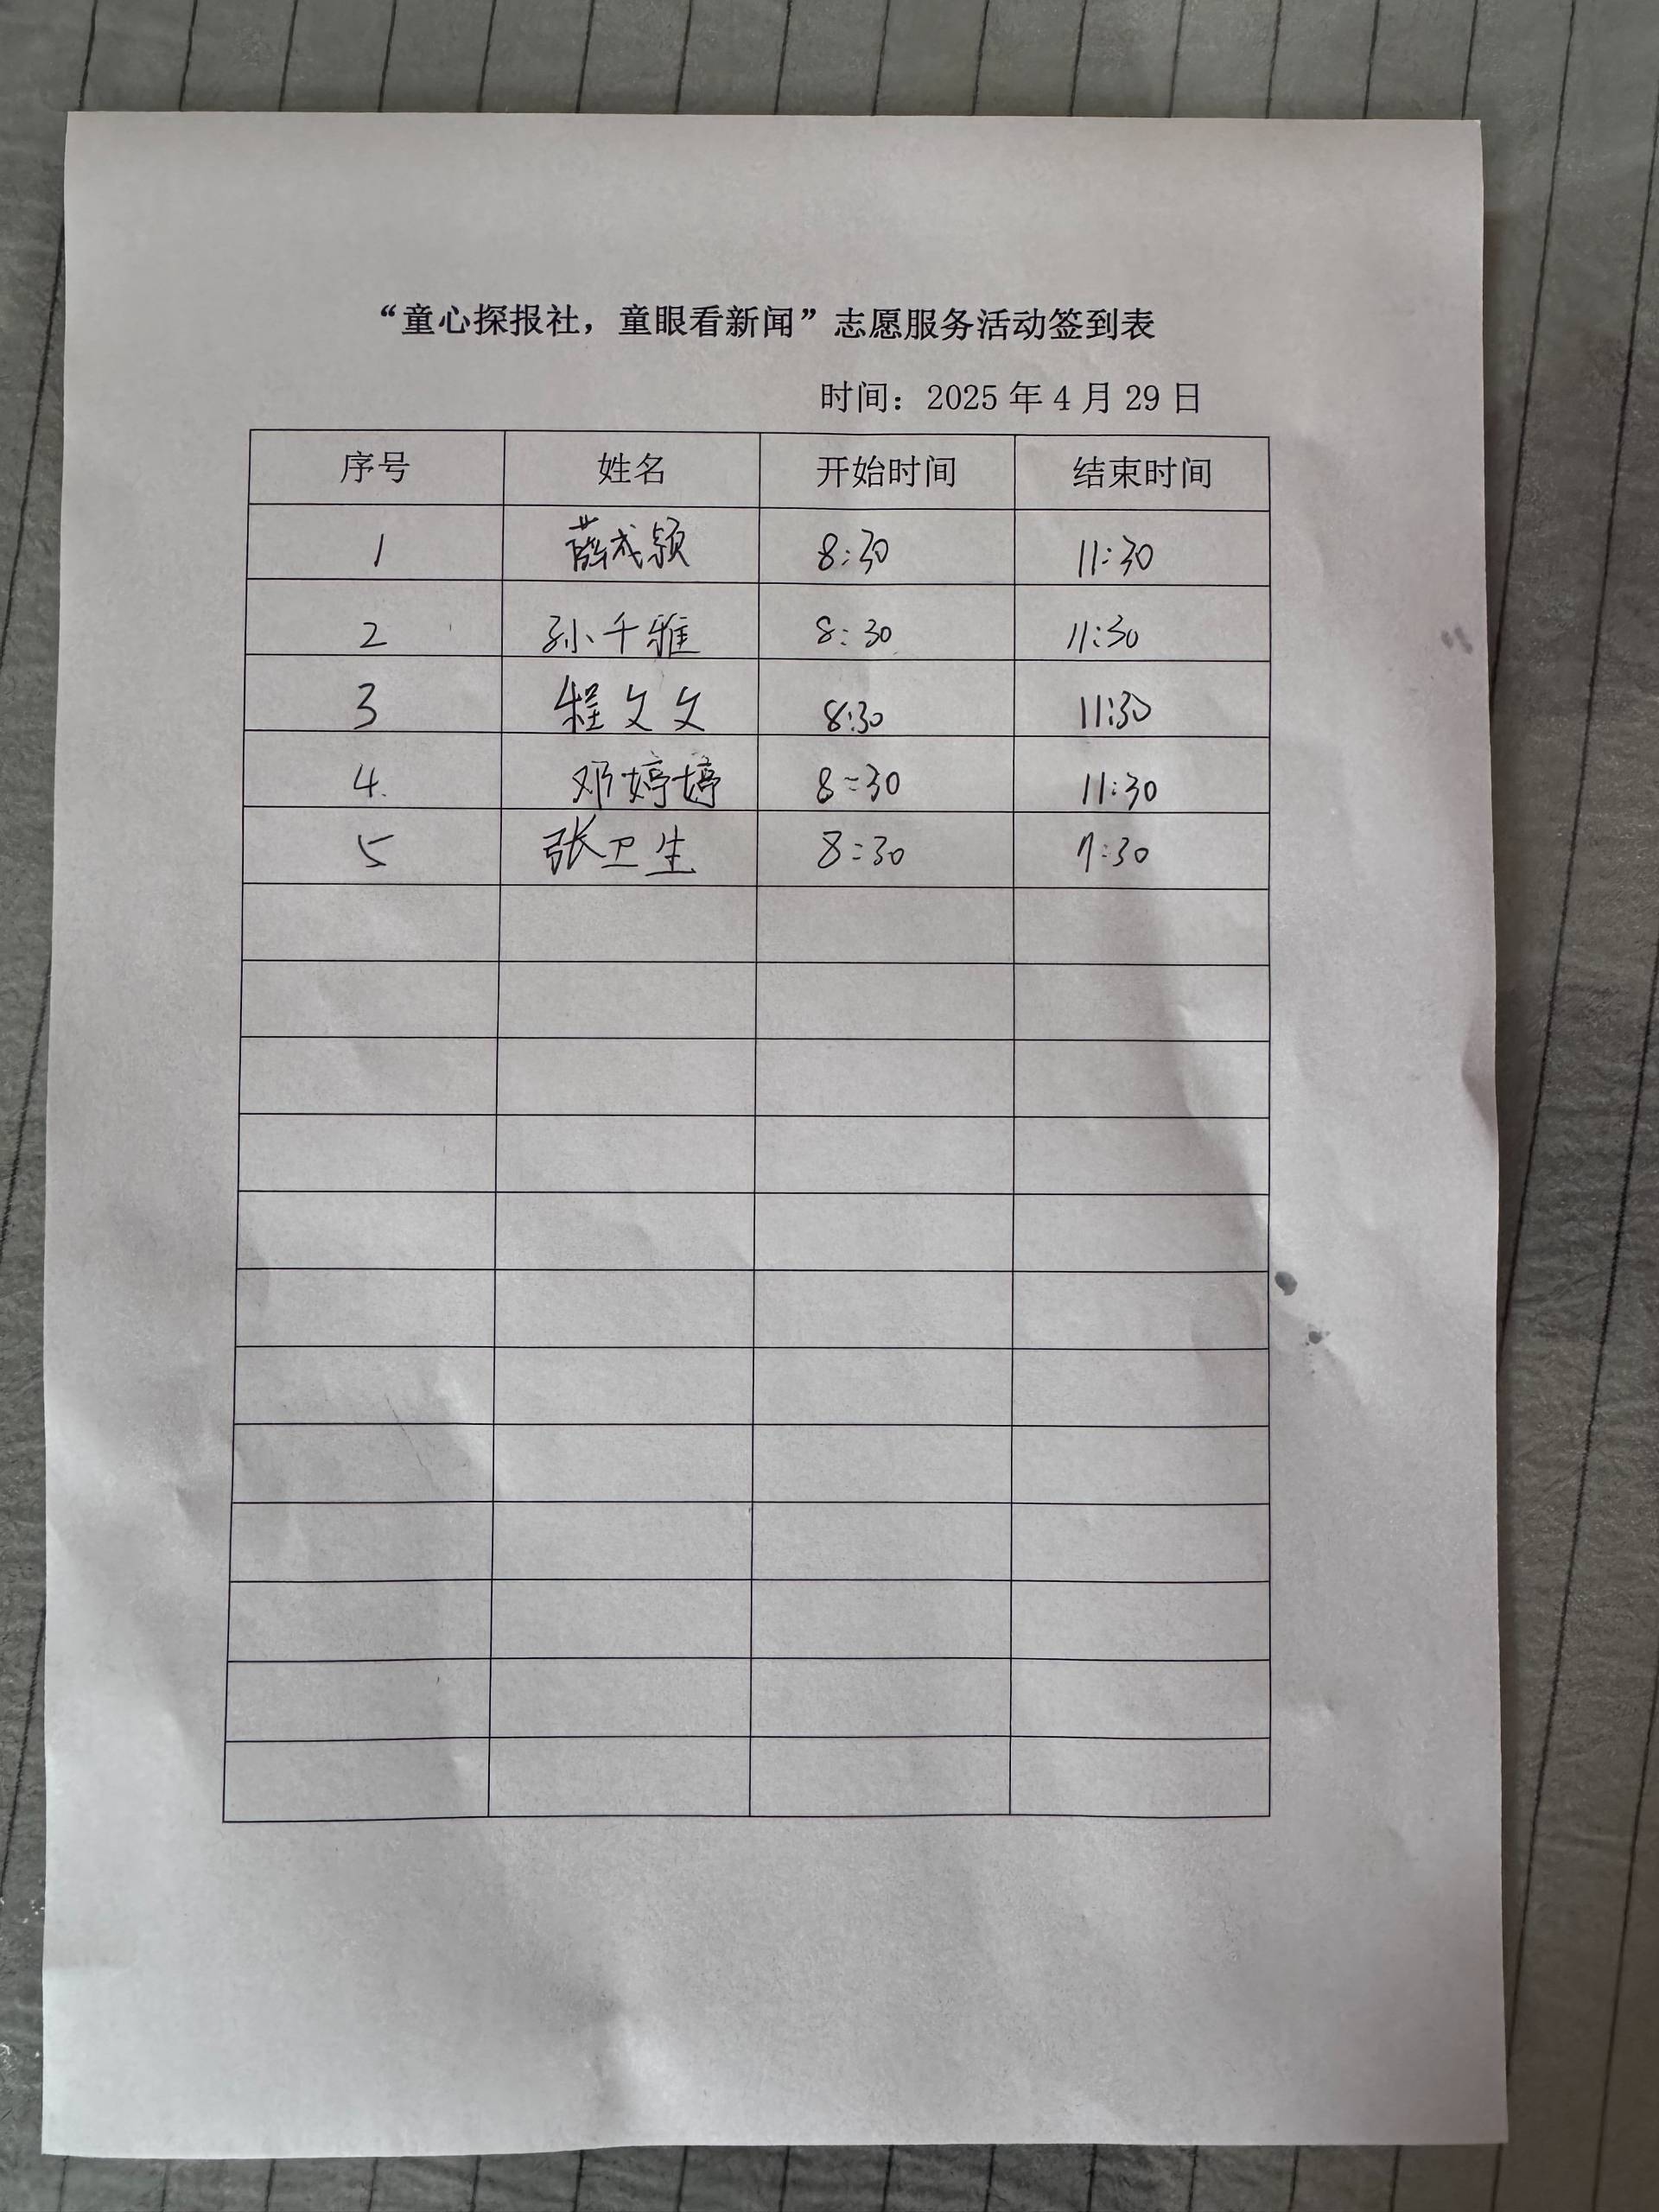 “童心探报社，童眼看新闻”志愿服务活动签到表
时间：2025 年 4 月 29 日
序号 姓名 开始时间 结束时间
1 薛成颖 8:30 11:30
2 孙千雅 8:30 11:30
3 程文文 8:30 11:30
4. 邓婷婷 8:30 11:30
5 张卫生 8:30 11:30